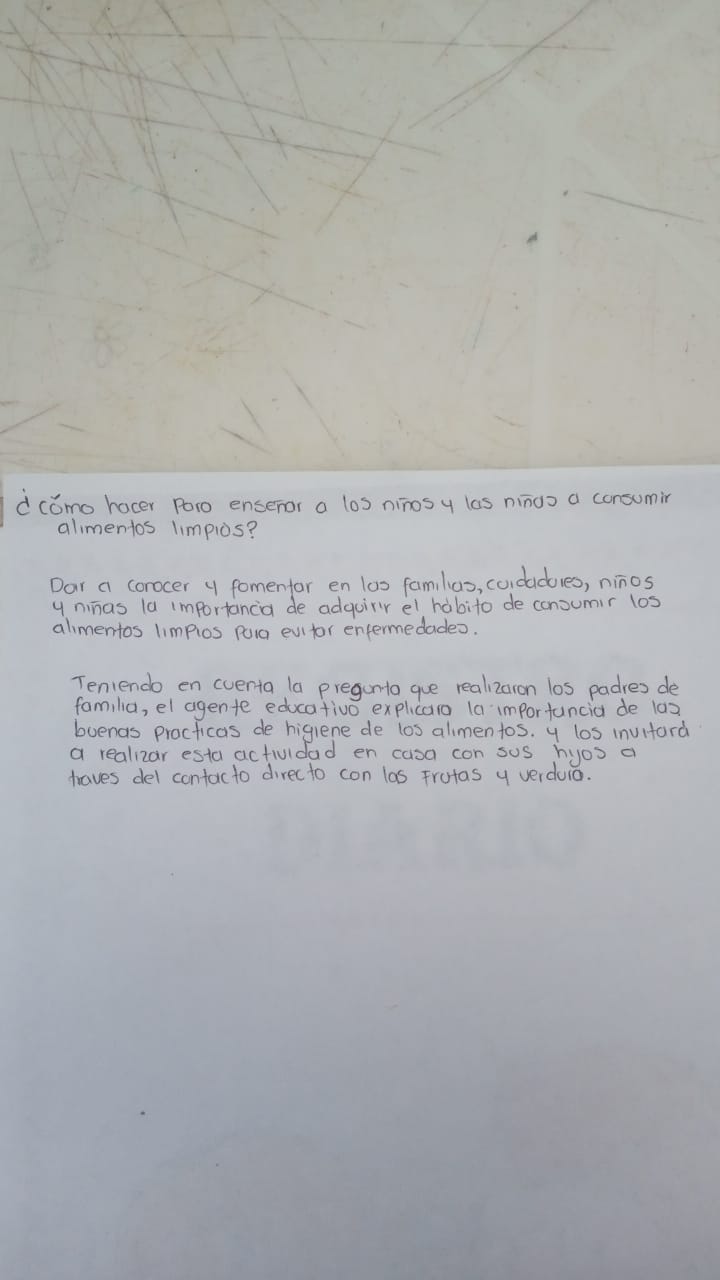 ¿cómo hacer para enseñar a los niños y las niñas a consumir
alimentos limpios?
Dar a conocer y fomentar en las familias, cuidadores, niños
y niñas la importancia de adquirir el hábito de consumir los
alimentos limpios para evitar enfermedades.
Teniendo en cuenta la pregunta que realizaron los padres de
familia, el agente educativo explicara la importancia de las
buenas practicas de higiene de los alimentos. y los invitará
a realizar esta actividad en casa con sus hijos a
traves del contacto directo con las frutas y verdura.